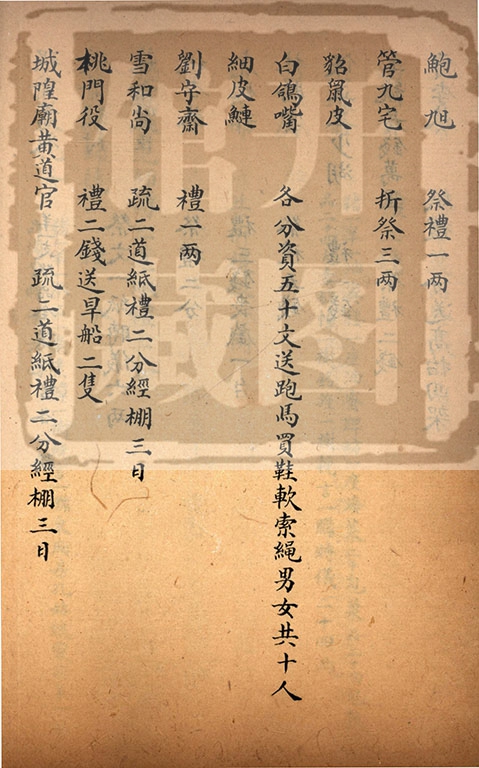 鮑旭 祭禮一两
管九宅 折祭三两
貂鼠皮
白鴿嘴 各分資五十文送跑馬買鞋軟索繩男女共十人
細皮鰱
劉守齋 禮一两
雪和尚 疏二道紙禮二分經棚三日
桃門役 禮二錢送旱船二隻
城隍廟黄道官 疏二道紙禮二分經棚三日